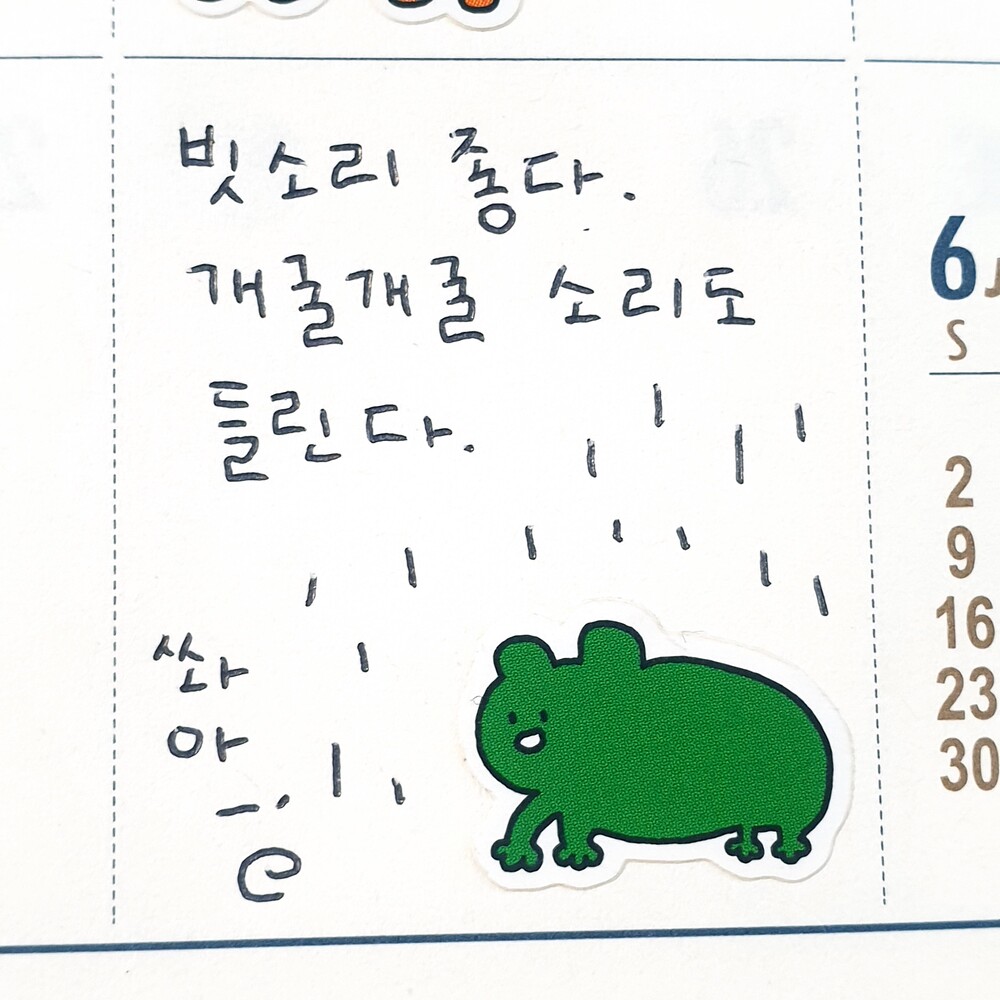 빗소리 좋다.
개굴개굴 소리도
들린다.
쏴
아
6
S
2
9
16
23
30